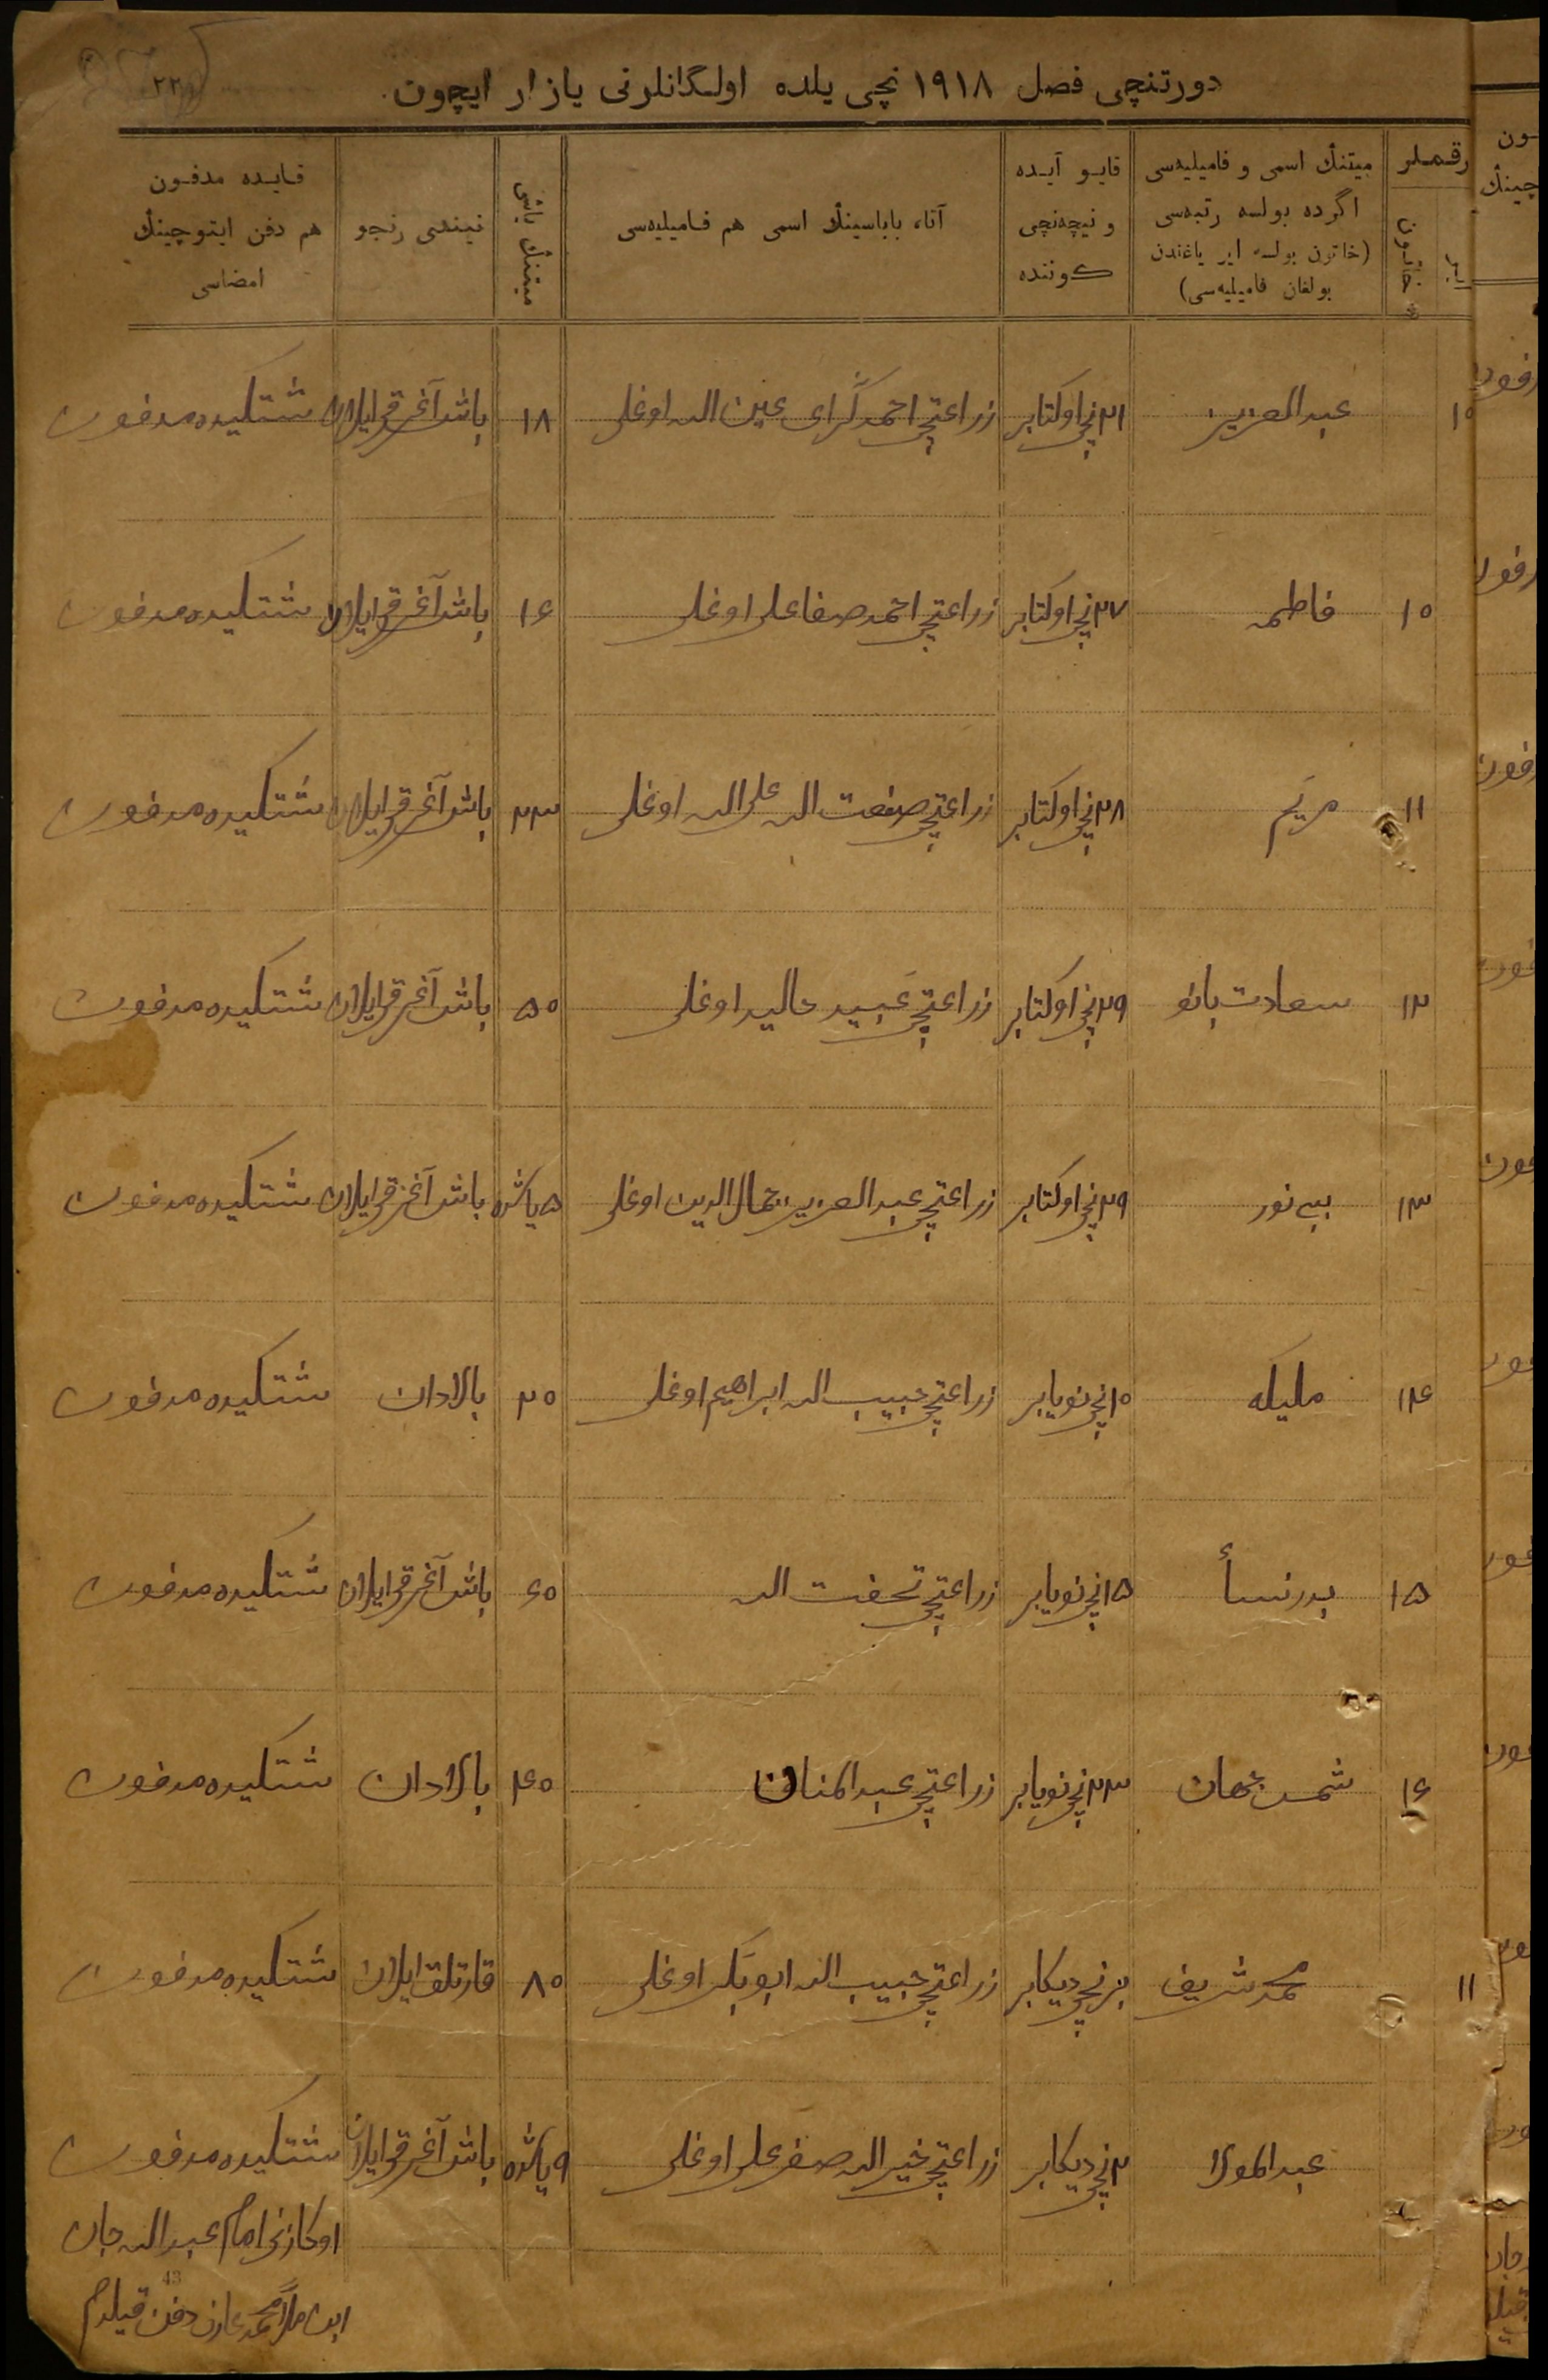 دورتنچی فصل ۱۹۱۸ نچی یلده اولگانلرنی یازار ایچون.
رقملر
ایر
خاتون
میتنڭ اسمی و فامیلیەسی
اگرده بولسه رتبەسی
(خاتون بولسه ایر یاغندن
بولغان فامیلیەسی)
قایو آیده
و نیچەنچی
کوننده
آتا، باباسینڭ اسمی هم فامیلیەسی
میتنڭ یاشی
نیندی رنجو
قایده مدفون
هم دفن ایتوچینڭ
امضاسی
۱۰ عبدالعزیز ۲۱نچی اوکتابر زراعتچی احمدگرای عین الله اوغلی ۱۸ باش آغرقی ایلان شتکیده مدفون
۱۰ فاطمه ۲۷نچی اوکتابر زراعتچی احمدصفا علی اوغلی ۱۶ باش آغرقی ایلان شتکیده مدفون
۱۱ مریم ۲۸نچی اوکتابر زراعتچی صنعت الله علی الله اوغلی ۲۳ باش آغرقی ایلان شتکیده مدفون
۱۲ سعادت بانو ۲۹نچی اوکتابر زراعتچی عبید حالید اوغلی ۵۰ باش آغرقی ایلان شتکیده مدفون
۱۳ بیبی نور ۲۹نچی اوکتابر زراعتچی عبدالعزیز جمال الدین اوغلی ۵ یاشده باش آغرقی ایلان شتکیده مدفون
۱۴ ملیکه ۱۰نچی نویابر زراعتچی حبیب الله ابراهیم اوغلی ۲۰ بالادان شتکیده مدفون
۱۵ بدرنسأ ۱۵نچی نویابر زراعتچی تحفت الله ۶۰ باش آغرقی ایلان شتکیده مدفون
۱۶ شمس جهان ۲۳نچی نویابر زراعتچی عبدالمنان ۴۰ بالادان شتکیده مدفون
۱۱ محمدشریف برنچی دیکابر زراعتچی حبیب الله ابوبکر اوغلی ۸۰ قارتلق ایلان شتکیده مدفون
عبدالمولا ۲نچی دیکابر زراعتچی خیرالله صفرعلی اوغلی ۹ یاشده باش آغرقی ایلان شتکیده مدفون
اوکازنی امام عبدالله جان
ابن ملا محمد عارف دفن قیلدم
43